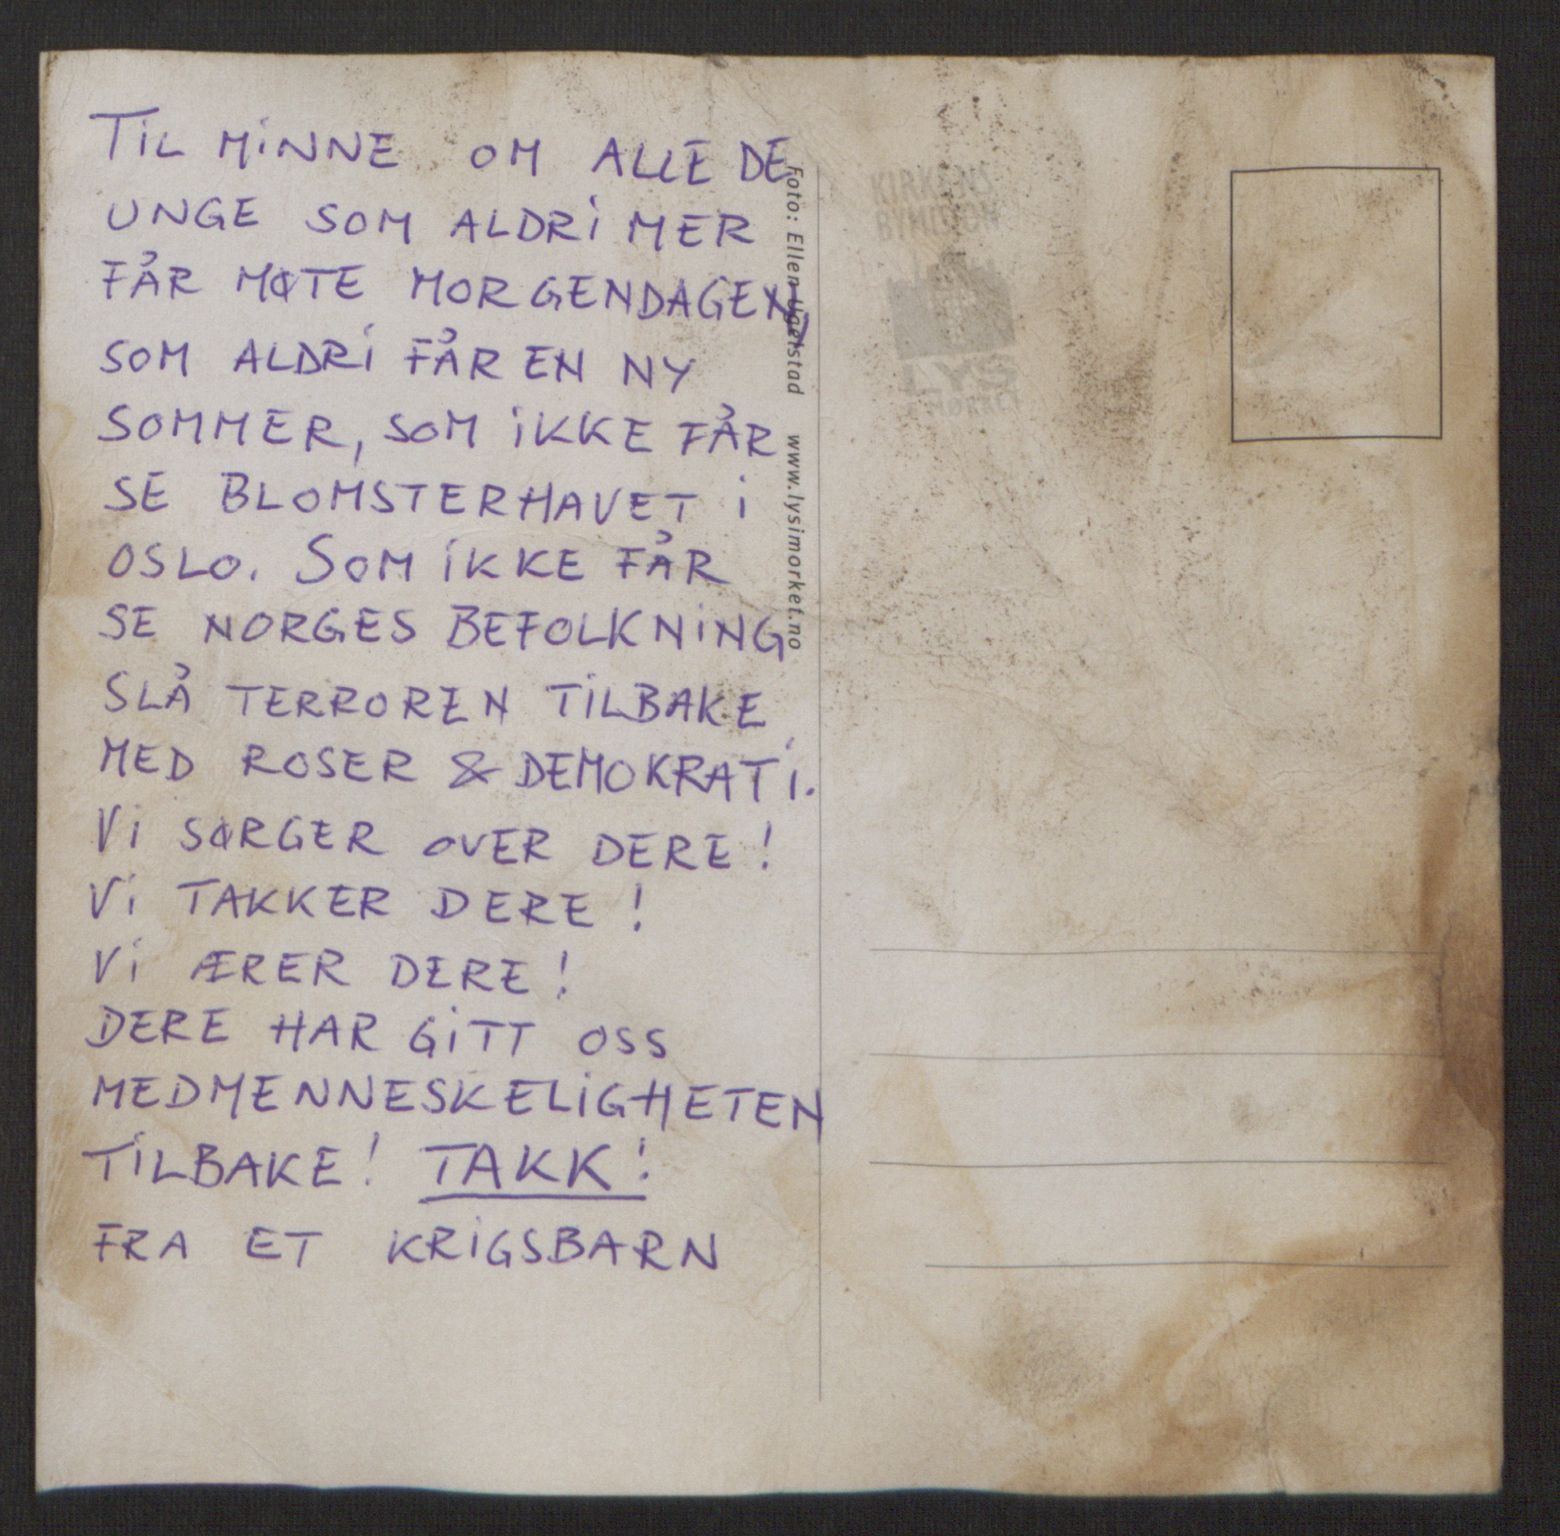 TIL MINNE OM ALLE DE
UNGE SOM ALDRI MER
FÅR MØTE MORGENDAGEN,
SOM ALDRI FÅR EN NY
SOMMER, SOM IKKE FÅR
SE BLOMSTERHAVET I
OSLO. SOM IKKE FÅR
SE NORGES BEFOLKNING
SLÅ TERROREN TILBAKE
MED ROSER & DEMOKRATI.
VI SØRGER OVER DERE!
VI TAKKER DERE!
VI ÆRER DERE!
DERE HAR GITT OSS
MEDMENNESKELIGHETEN
TILBAKE! TAKK!
FRA ET KRIGSBARN
Foto: Ellen Ugelstad www.lysimorket.no
KIRKENS
BYMISJON
LYS
I MØRKET